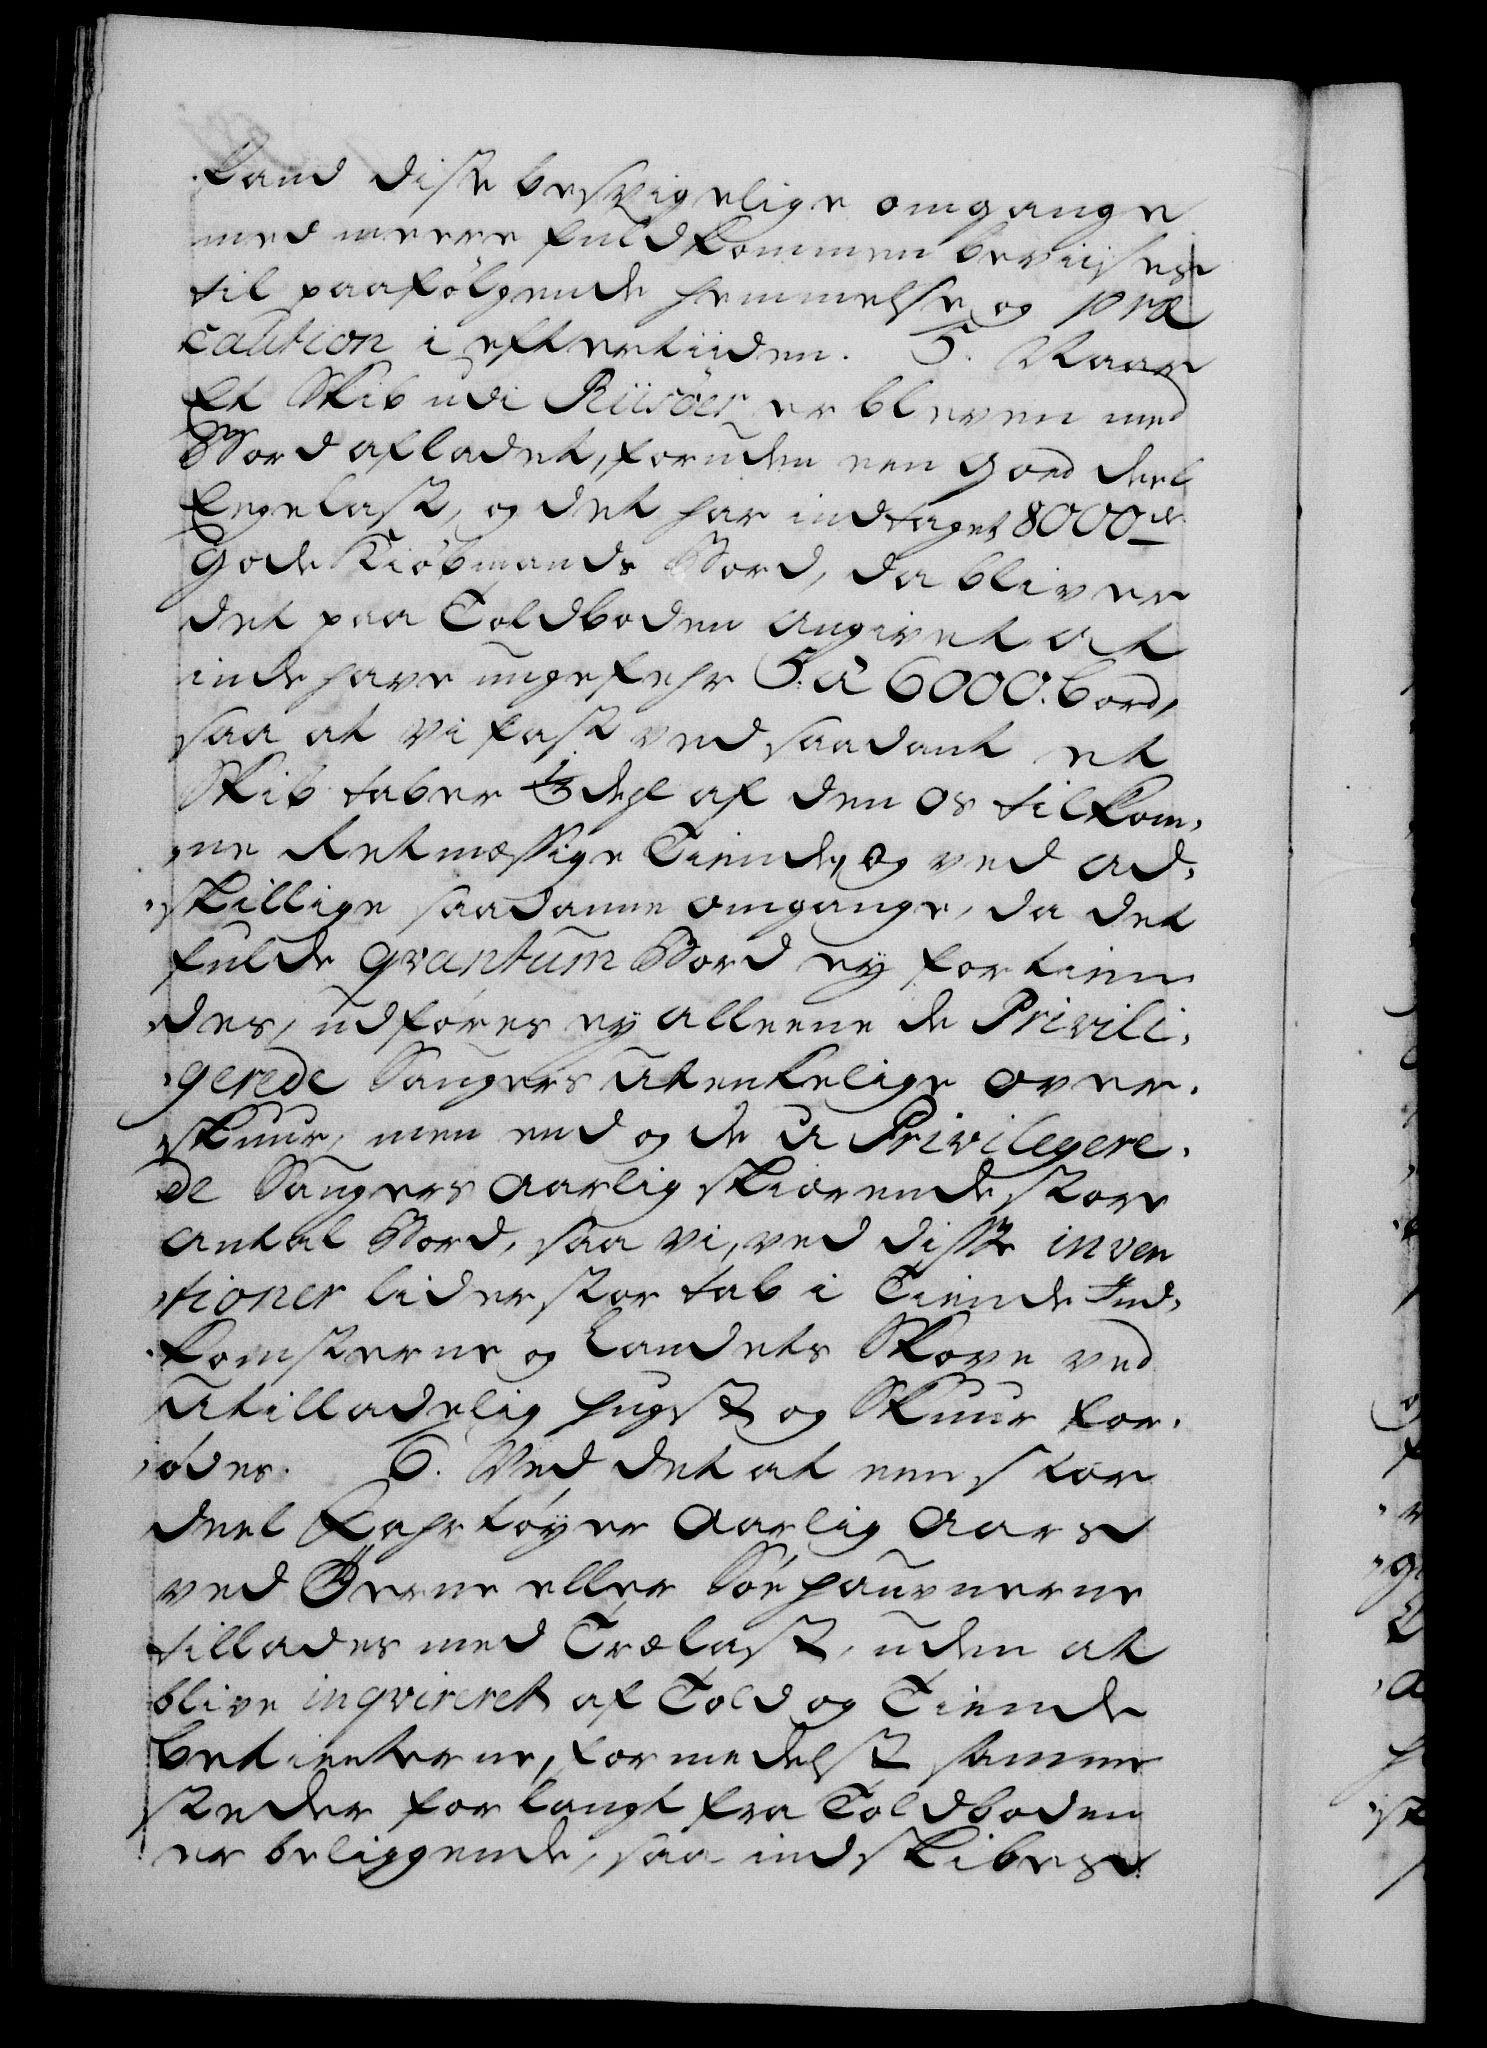 kand diste besvigelige omgange
med meere fuldkommen beviises
til paafølgende hemmelse og præ
caution i eftertiiden. 5. Naar
Et Skib udi Riisøer er bleven med
Bord afladet, foruden een goed deel
Eegelast, og det har indtaget 8000de
gode Kiøbmands Bord, da bliver
det paa Toldboden angivet at
indehave ungefehr 5. à 6000. bord,
saa at vi fast ved saadant et
Skib taber 1/3 deel af den os tilkom,
,,ne Retmæssige Tiende, og ved ad,
,,skillige saadanne omgange, da det
fulde qvantum Bord ey fortien
des, udføres ey alleene de Privili,
,,gerede Sauger utenkelige over,
skuur, men end og de u Privilegere,
de Saugers aarlig skiærende store
antal Bord, saa vi, ved disse inven
,,tioner lider stor tab i Tiende Ind,
,,komsterne og Landets Skove ved
utilladelig hugst og Skuur for,
,,ødes. 6. Ved det at een stor
deel Fahrtøyer aarlig aars
ved Øerne eller Søehaunerne
tillades med Trælast, uden at
blive inqvireret af Told og Tiende
betienterne, formedelst samme
steder for langt fra Toldboden
er beliggende, saa indskibes